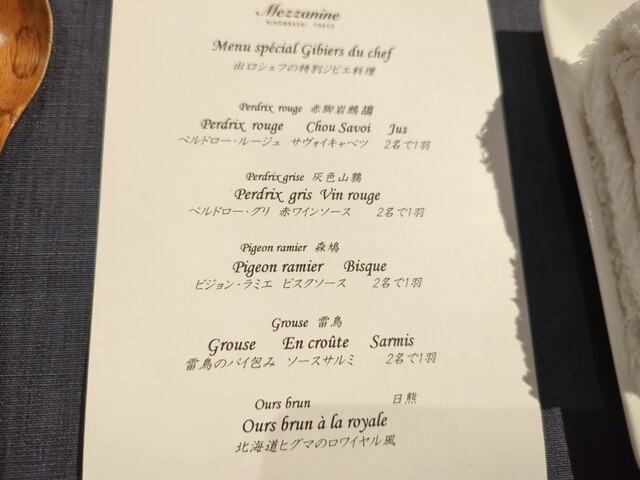 Mezzanine
NIHONBASHI TOKYO
Menu spécial Gibiers du chef
出口シェフの特別ジビエ料理
Perdrix rouge 赤脚岩鷓鴣
Perdrix rouge Chou Savoi Jus
ペルドロー・ルージュ サヴォイキャベツ 2名で1羽
Perdrix grise 灰色山鶉
Perdrix gris Vin rouge
ペルドロー・グリ 赤ワインソース 2名で1羽
Pigeon ramier 森鳩
Pigeon ramier Bisque
ピジョン・ラミエ ビスクソース 2名で1羽
Grouse 雷鳥
Grouse En croûte Sarmis
雷鳥のパイ包み ソースサルミ 2名で1羽
Ours brun 日熊
Ours brun à la royale
北海道ヒグマのロワイヤル風